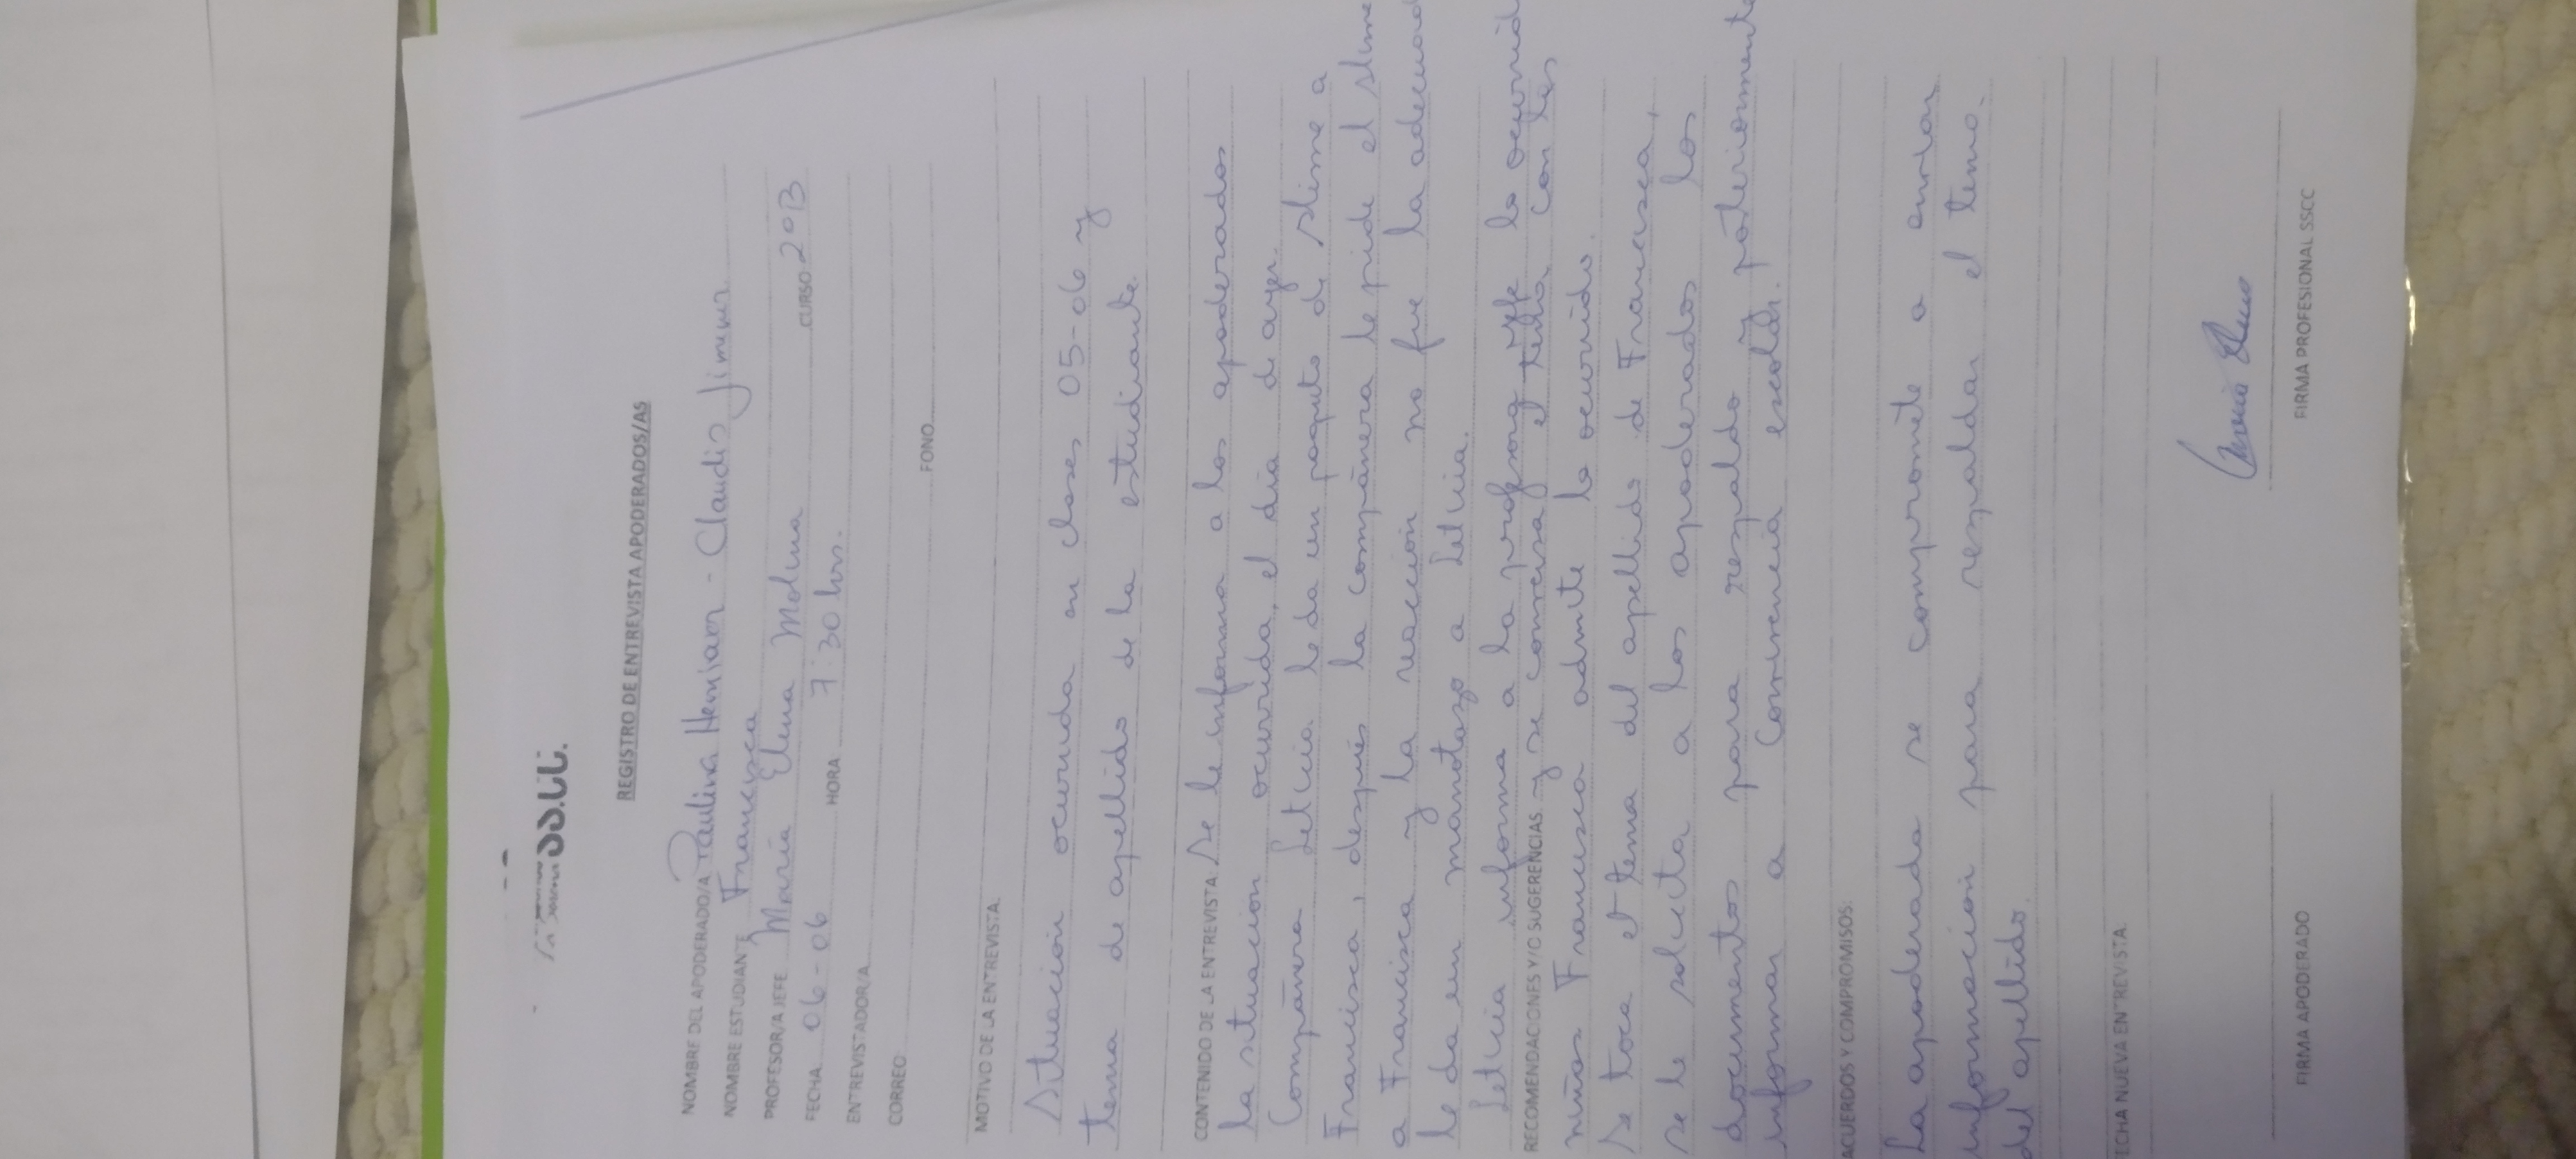 SS.CC.
REGISTRO DE ENTREVISTA APODERADOS/AS
NOMBRE DEL APODERADO/A Paulina Henriquez - Claudio Jimenez
NOMBRE ESTUDIANTE Francisca
PROFESOR/A JEFE María Elena Molina CURSO 2°B
FECHA 06-06 HORA 7:30 hrs.
ENTREVISTADOR/A
CORREO FONO
MOTIVO DE LA ENTREVISTA:
Situación ocurrida en clases 05-06 y
tema de apellido de la estudiante.
CONTENIDO DE LA ENTREVISTA: Se le informa a los apoderados
la situación ocurrida, el día de ayer.
Compañera Leticia le da un poquito de slime a
Francisca, después la compañera le pide el slime
a Francisca y la reacción no fue la adecuada
le da un manotazo a Leticia.
Leticia informa a la profesora jefe lo ocurrido
RECOMENDACIONES Y/O SUGERENCIAS y se conversa el tema con las
niñas Francisca admite lo ocurrido.
Se toca el tema del apellido de Francisca,
se le solicita a los apoderados los
documentos para respaldo y posteriormente
informar a Convivencia escolar.
ACUERDOS Y COMPROMISOS:
La apoderada se compromete a enviar
información para respaldar el tema
del apellido.
FECHA NUEVA ENTREVISTA:
FIRMA APODERADO FIRMA PROFESIONAL SSCC